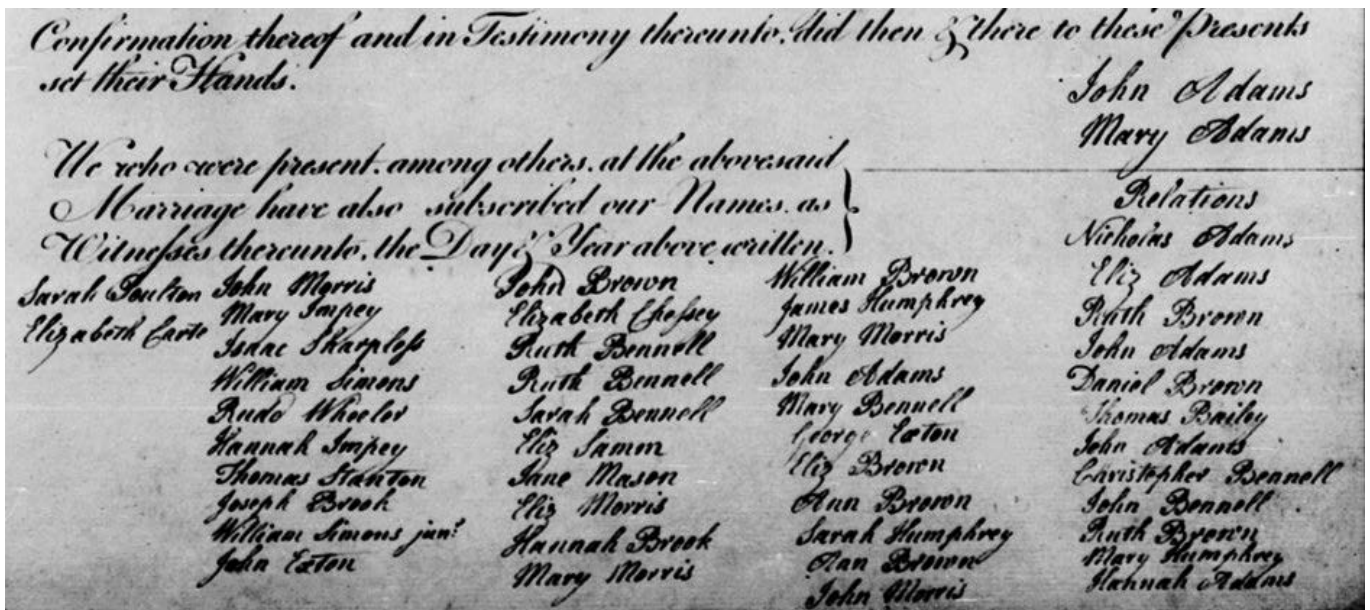 Confirmation thereof and in Testimony thereunto, did then & there to these Presents
set their Hands.
John Adams
Mary Adams
We who were present, among others, at the abovesaid
Marriage have also subscribed our Names, as
Witnesses thereunto, the Day & Year above written.
Sarah Poulton
Elizabeth Carte
John Morris
Mary Impey
Isaac Sharpless
William Simons
Rudd Wheeler
Hannah Impey
Thomas Stanton
Joseph Brook
William Simons junr.
John Exton
John Brown
Elizabeth Chessey
Ruth Bennell
Ruth Bennell
Sarah Bennell
Eliz Samm
Jane Mason
Eliz Morris
Hannah Brook
Mary Morris
William Brown
James Humphrey
Mary Morris
John Adams
Mary Bennell
George Exton
Eliz Brown
Ann Brown
Sarah Humphrey
Ann Brown
John Morris
Relations
Nicholas Adams
Eliz Adams
Ruth Brown
John Adams
Daniel Brown
Thomas Bailey
John Adams
Christopher Bennell
John Bennell
Ruth Brown
Mary Humphrey
Hannah Adams